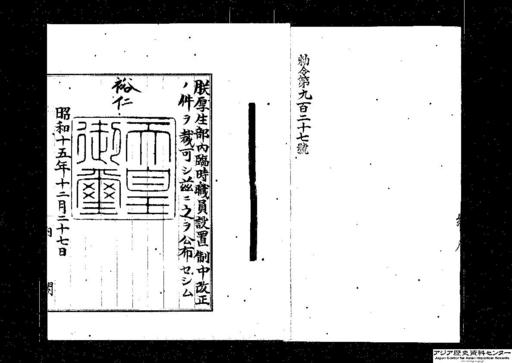 勅令第九百二十七號
朕厚生部內臨時職員設置制中改正
ノ件ヲ裁可シ茲ニ之ヲ公布セシム
裕仁
天皇
御璽
昭和十五年十二月二十七日
內閣
アジア歴史資料センター
Japan Center for Asian Historical Records